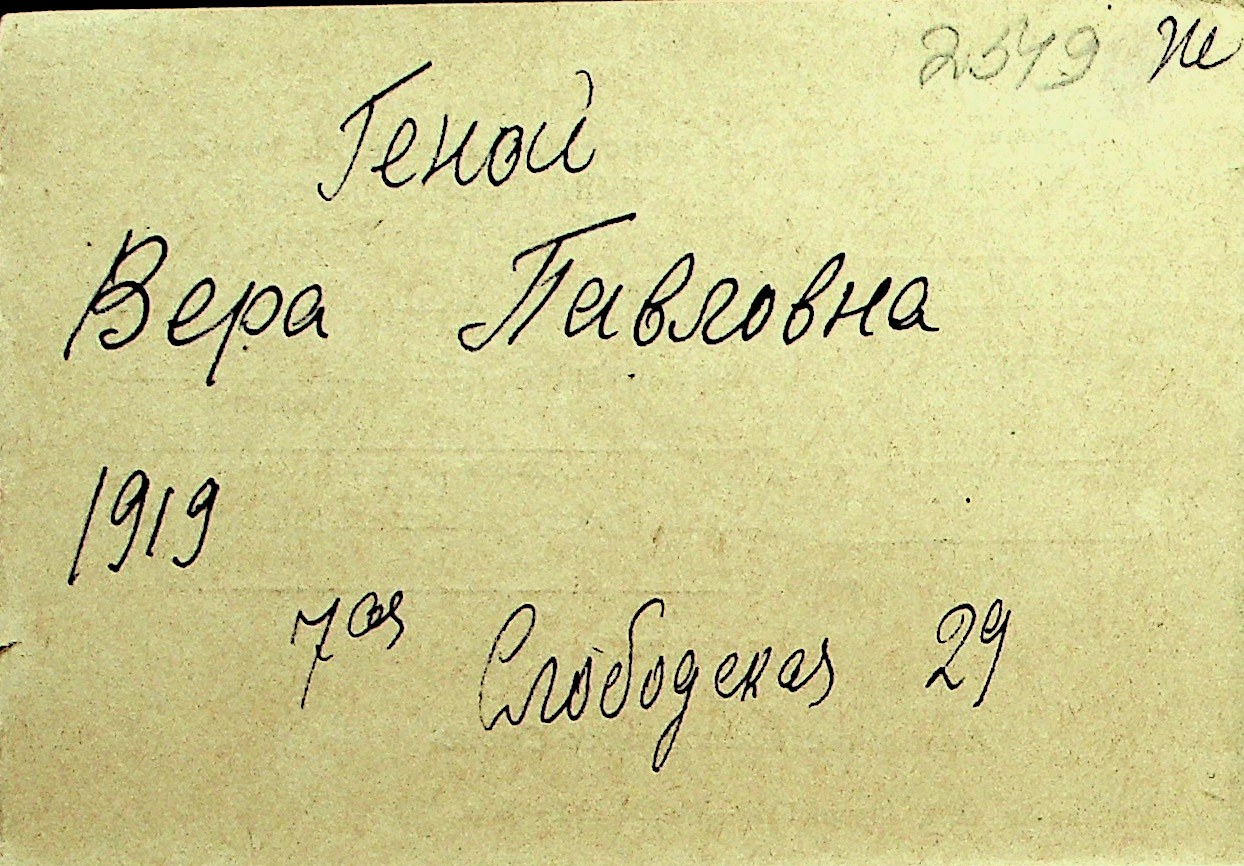 2549 Ж
Геной
Вера Павловна
1919
7ая Слободская 29